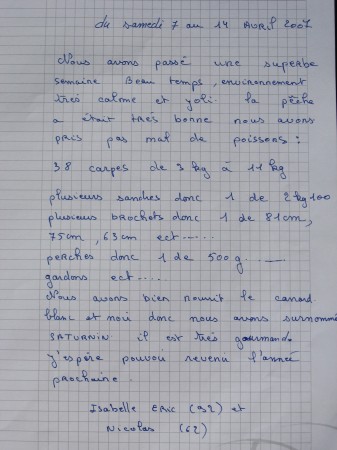 du samedi 7 au 14 AVRIL 2007
Nous avons passé une superbe
semaine Beau temps, environnement
très calme et yoli. la pêche
a était très bonne nous avons
pris pas mal de poissons :
38 carpes de 3 kg à 11 kg
plusieurs sandres donc 1 de 2 kg 100
plusieurs brochets donc 1 de 81 cm,
75 cm, 63 cm ect.......
perches donc 1 de 500 g .......
gardons ect....
Nous avons bien nourrit le canard
blanc et noir donc nous avons surnommé
SATURNIN il est très gourmand.
j'espère pouvou revenu l'année
prochaine.
Isabelle ERIC (92) et
Nicolas (62)